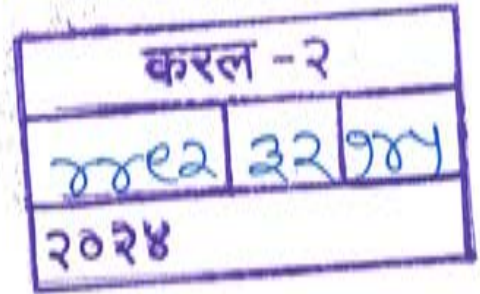 करल - २
४४९२ ३२ १४५
२०२४